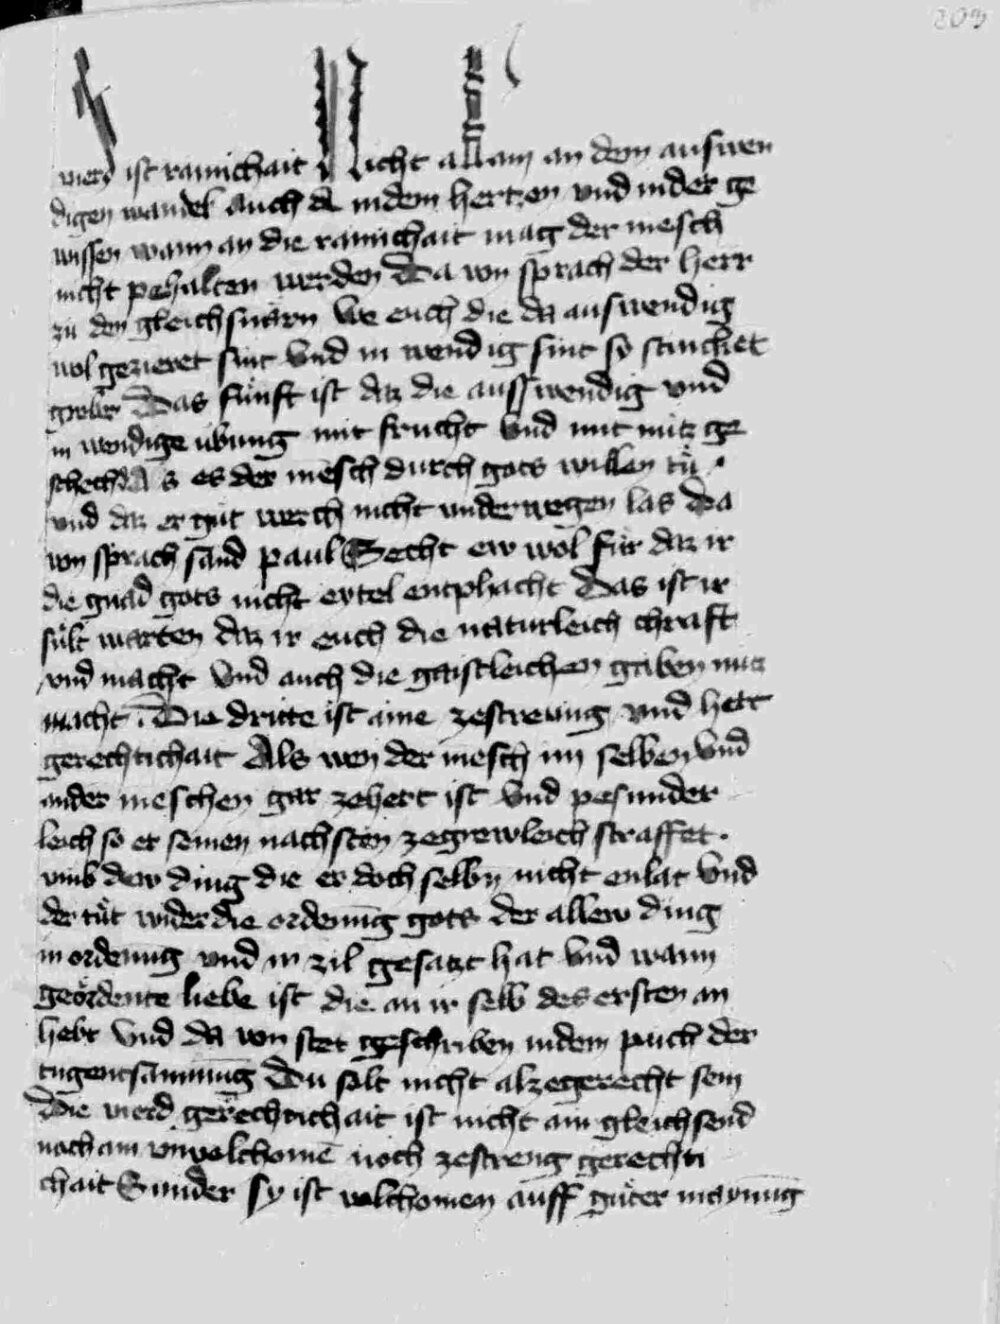 203
vierd ist rainichait Nicht allain an dem auswen
digen wandel Auch da in dem hertzen vnd in der ge
wissen wann an die rainichait mag der mesch
nicht pehalten werden Da von sprach der herr
zu den gleichsnarn We euch die da auswendig
wol gezieret sint Vnd in wendig sint so stinchet
greber Das fünft ist daz die ausswendig vnd
in wendige übung mit frucht Vnd mit nutz ge
schech Als es der mēsch durch gots willen tü ·
vnd daz er güt werch nicht vnderwegen las Da
von sprach sand paul Secht ew wol für daz ir
die gnad gots nicht eytel enphacht Das ist ir
sült warten daz ir euch die naturleich chraft
vnd macht Vnd auch die gaistleichen gaben nutz
macht . Die dritte ist aine zestrenng vnd hert
gerechtichait Als wen der mesch im selben Vnd
ander meschen gar zehert ist Vnd pesunder
leich so er seinen nachsten zegrewleich straffet .
vmb dew ding die er doch selbn nicht enlat Vnd
der tüt wider die ordenūg gots der allew ding
in ordenūg vnd in zil gesatzt hat Vnd wann
geördente liebe ist die an ir selb des ersten an
hebt Vnd da von stet geschriben in dem puch der
tugentsamnūg Du solt nicht alzegerecht sein
Die vierd gerechtichait ist nicht ain gleichsend
noch ain vnvolchomē noch zestreng gerechti
chait Sunder sy ist volchomen auff güter maynūg